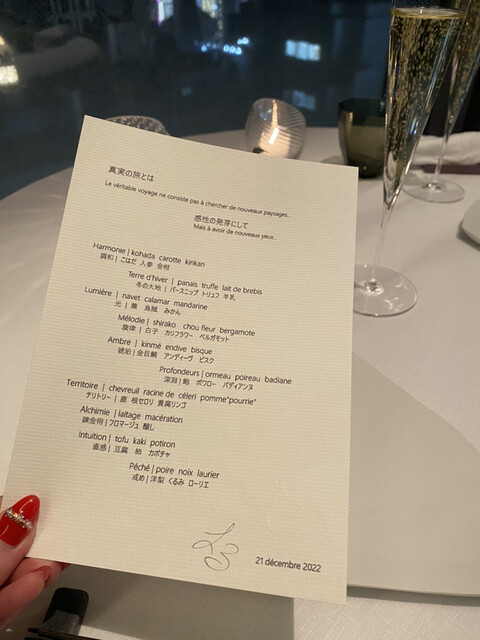 真実の旅とは
Le véritable voyage ne consiste pas à chercher de nouveaux paysages...
感性の発芽にして
Mais à avoir de nouveaux yeux...
Harmonie | kohada carotte kinkan
調和 | こはだ 人参 金柑
Terre d'hiver | panais truffe lait de brebis
冬の大地 | パースニップ トリュフ 羊乳
Lumière | navet calamar mandarine
光 | 蕪 烏賊 みかん
Mélodie | shirako chou fleur bergamote
旋律 | 白子 カリフラワー ベルガモット
Ambre | kinmé endive bisque
琥珀 | 金目鯛 アンディーヴ ビスク
Profondeurs | ormeau poireau badiane
深淵 | 鮑 ポワロー バディアンヌ
Territoire | chevreuil racine de céleri pomme"pourrie"
テリトリー | 鹿 根セロリ 貴腐リンゴ
Alchimie | laitage macération
錬金術 | フロマージュ 醸し
Intuition | tofu kaki potiron
直感 | 豆腐 柿 カボチャ
Péché | poire noix laurier
戒め | 洋梨 くるみ ローリエ
21 décembre 2022